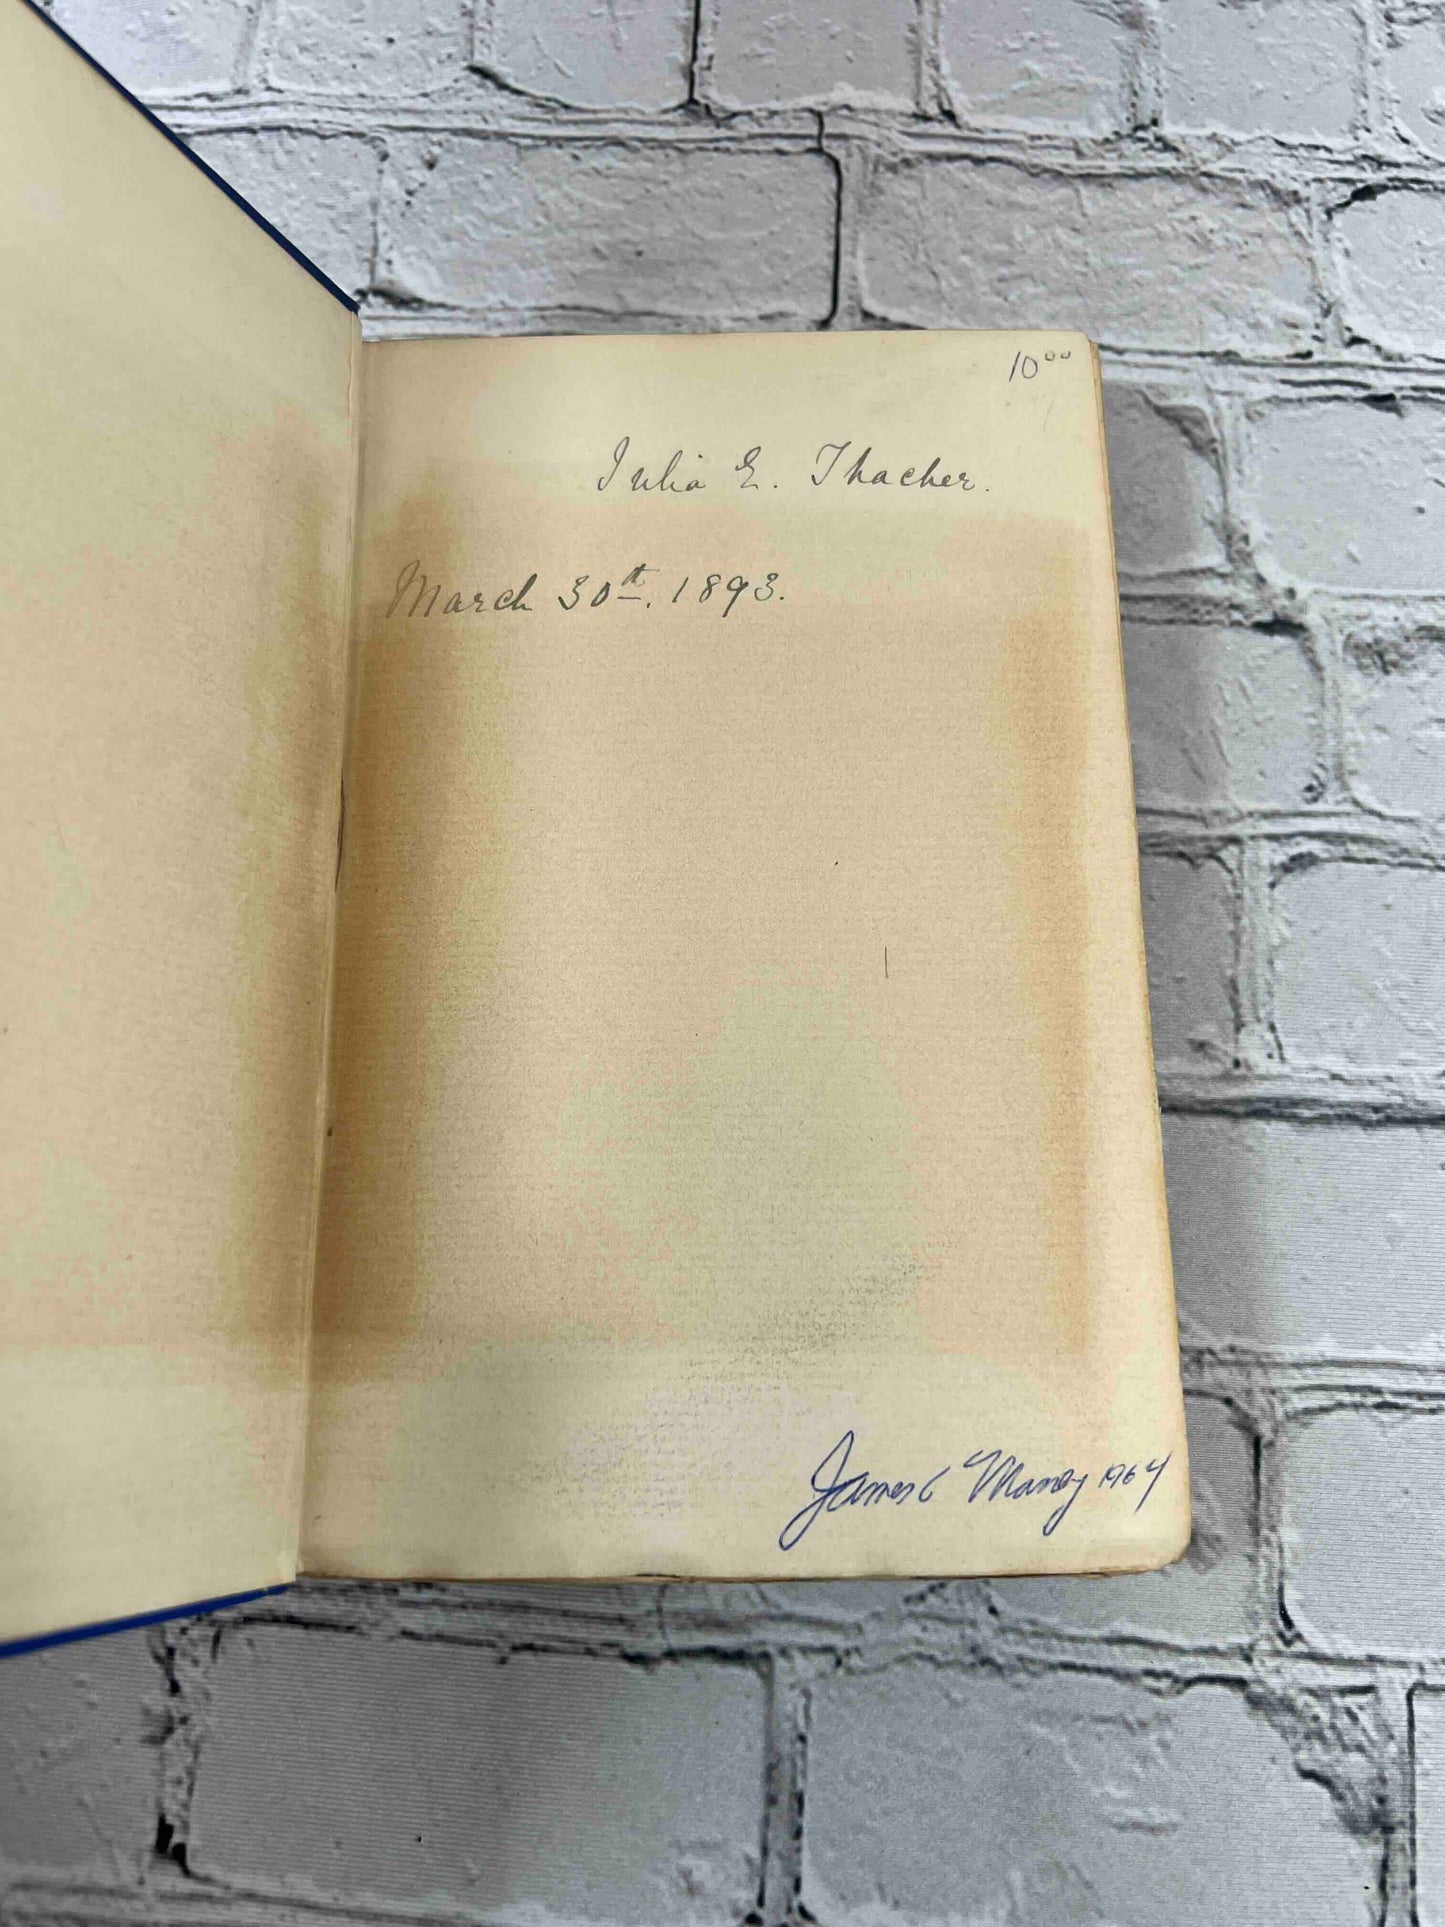 10⁰⁰
Julia E. Thacher.
March 30th. 1893.
James C Maney 1964